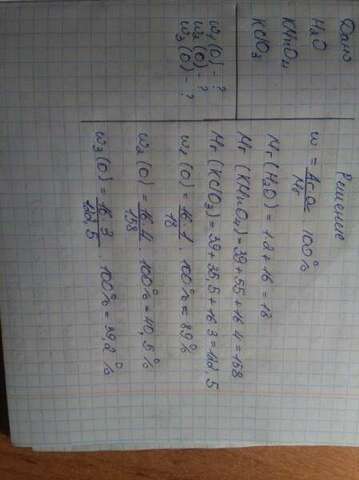 Дано
H₂O
KMnO₄
KClO₃
w₁(O) - ?
w₂(O) - ?
w₃(O) - ?
Решение
w = Ar·n / Mr · 100%
Mr(H₂O) = 1·2 + 16 = 18
Mr(KMnO₄) = 39 + 55 + 16·4 = 158
Mr(KClO₃) = 39 + 35,5 + 16·3 = 122,5
w₁(O) = 16·1 / 18 · 100% = 89%
w₂(O) = 16·4 / 158 · 100% = 40,5%
w₃(O) = 16·3 / 122,5 · 100% = 39,2%